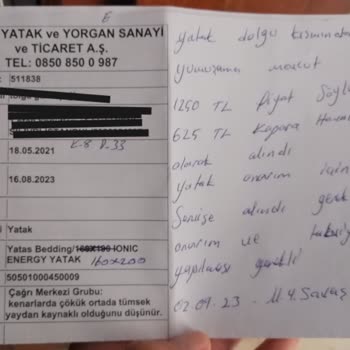 E
YATAK ve YORGAN SANAYİ
ve TİCARET A.Ş.
TEL: 0850 850 0 987
511838
18.05.2021
K-8 R-33
16.08.2023
Yatak
Yatas Bedding/160X190 IONIC
ENERGY YATAK 160x200
50501000450009
Çağrı Merkezi Grubu:
kenarlarda çökük ortada tümsek
yaydan kaynaklı olduğunu düşünür.
yatak dolgu kısmında
yumuşama mevcut
1250 TL fiyat söyl
625 TL kapora Haval
olarak alındı
yatak onarım için
Servise alındı gerek
onarım ve
yapılması gerekli
02.09.23 - M.Y. Savaş